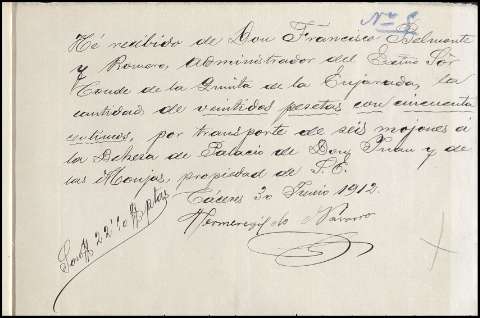 Nº 8
Hé recibido de Don Francisco Belmonte
y Romero, Administrador del Exmo Sor
Conde de la Quinta de la Enjarada, la
cantidad de veintidos pesetas con cincuenta
centimos, por transporte de seis mojones á
la Dehesa de Palacio de Don Juan y de
las Monjas, propiedad de S.E.
Cáceres 30 Junio 1912.
Hermenegildo Navarro
Son 22'50 ptas